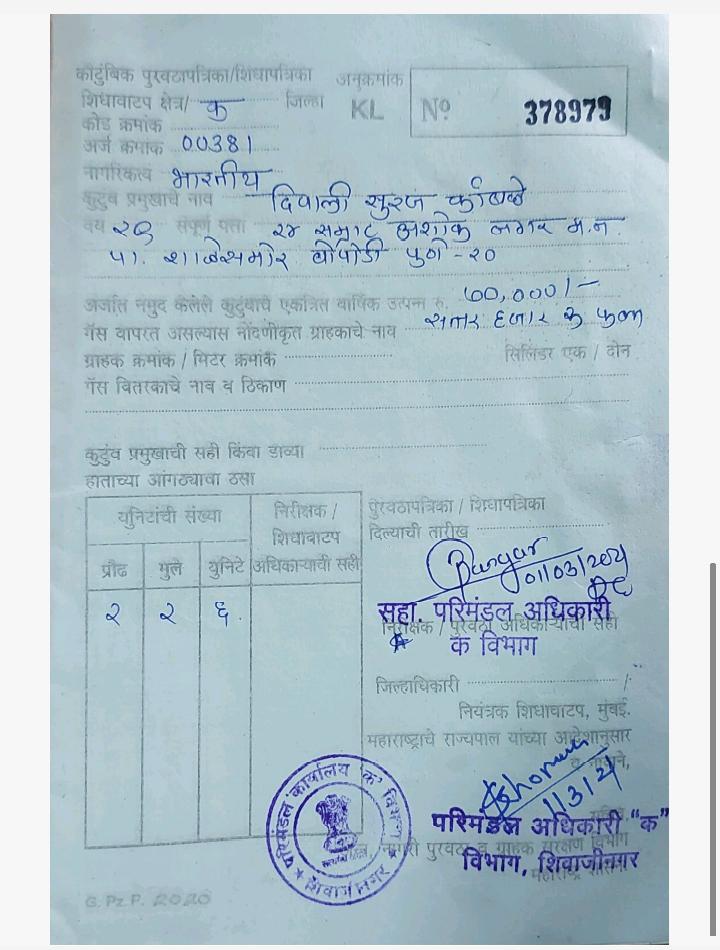 कौटुंबिक पुरवठापत्रिका/शिधापत्रिका अनुक्रमांक
शिधावाटप क्षेत्र/ क जिल्हा KL Nº 378979
कोड क्रमांक
अर्ज क्रमांक 00381
नागरिकत्व भारतीय
कुटुंब प्रमुखाचे नाव दिपाली सुरज कांबळे
वय २९ संपूर्ण पत्ता २४ सम्राट अशोक नगर म.न.
पा. शाळेसमोर बोपोडी पुणे -२०
अर्जात नमुद केलेले कुटुंबाचे एकत्रित वार्षिक उत्पन्न रु. ७०,०००/-
गॅस वापरत असल्यास नोंदणीकृत ग्राहकाचे नाव सत्तर हजार रु फक्त
ग्राहक क्रमांक / मिटर क्रमांक सिलिंडर एक / दोन
गॅस वितरकाचे नाव व ठिकाण
कुटुंब प्रमुखाची सही किंवा डाव्या
हाताच्या आंगठ्यावा ठसा
युनिटांची संख्या
निरीक्षक /
शिधावाटप
अधिकाऱ्याची सही
प्रौढ मुले युनिटे
२ २ ६.
पुरवठापत्रिका / शिधापत्रिका
दिल्याची तारीख
01/03/2021
सहा. परिमंडल अधिकारी
निरीक्षक / पुरवठा अधिकाऱ्याची सही
क विभाग
जिल्हाधिकारी /
नियंत्रक शिधावाटप, मुंबई.
महाराष्ट्राचे राज्यपाल यांच्या आदेशानुसार
व नावाने,
1/3/21
परिमंडल अधिकारी "क"
विभाग, शिवाजीनगर
नागरी पुरवठा व ग्राहक संरक्षण विभाग
महाराष्ट्र शासन
परिमंडल कार्यालय 'क' विभाग
शिवाजीनगर
G. Pz P. 2020